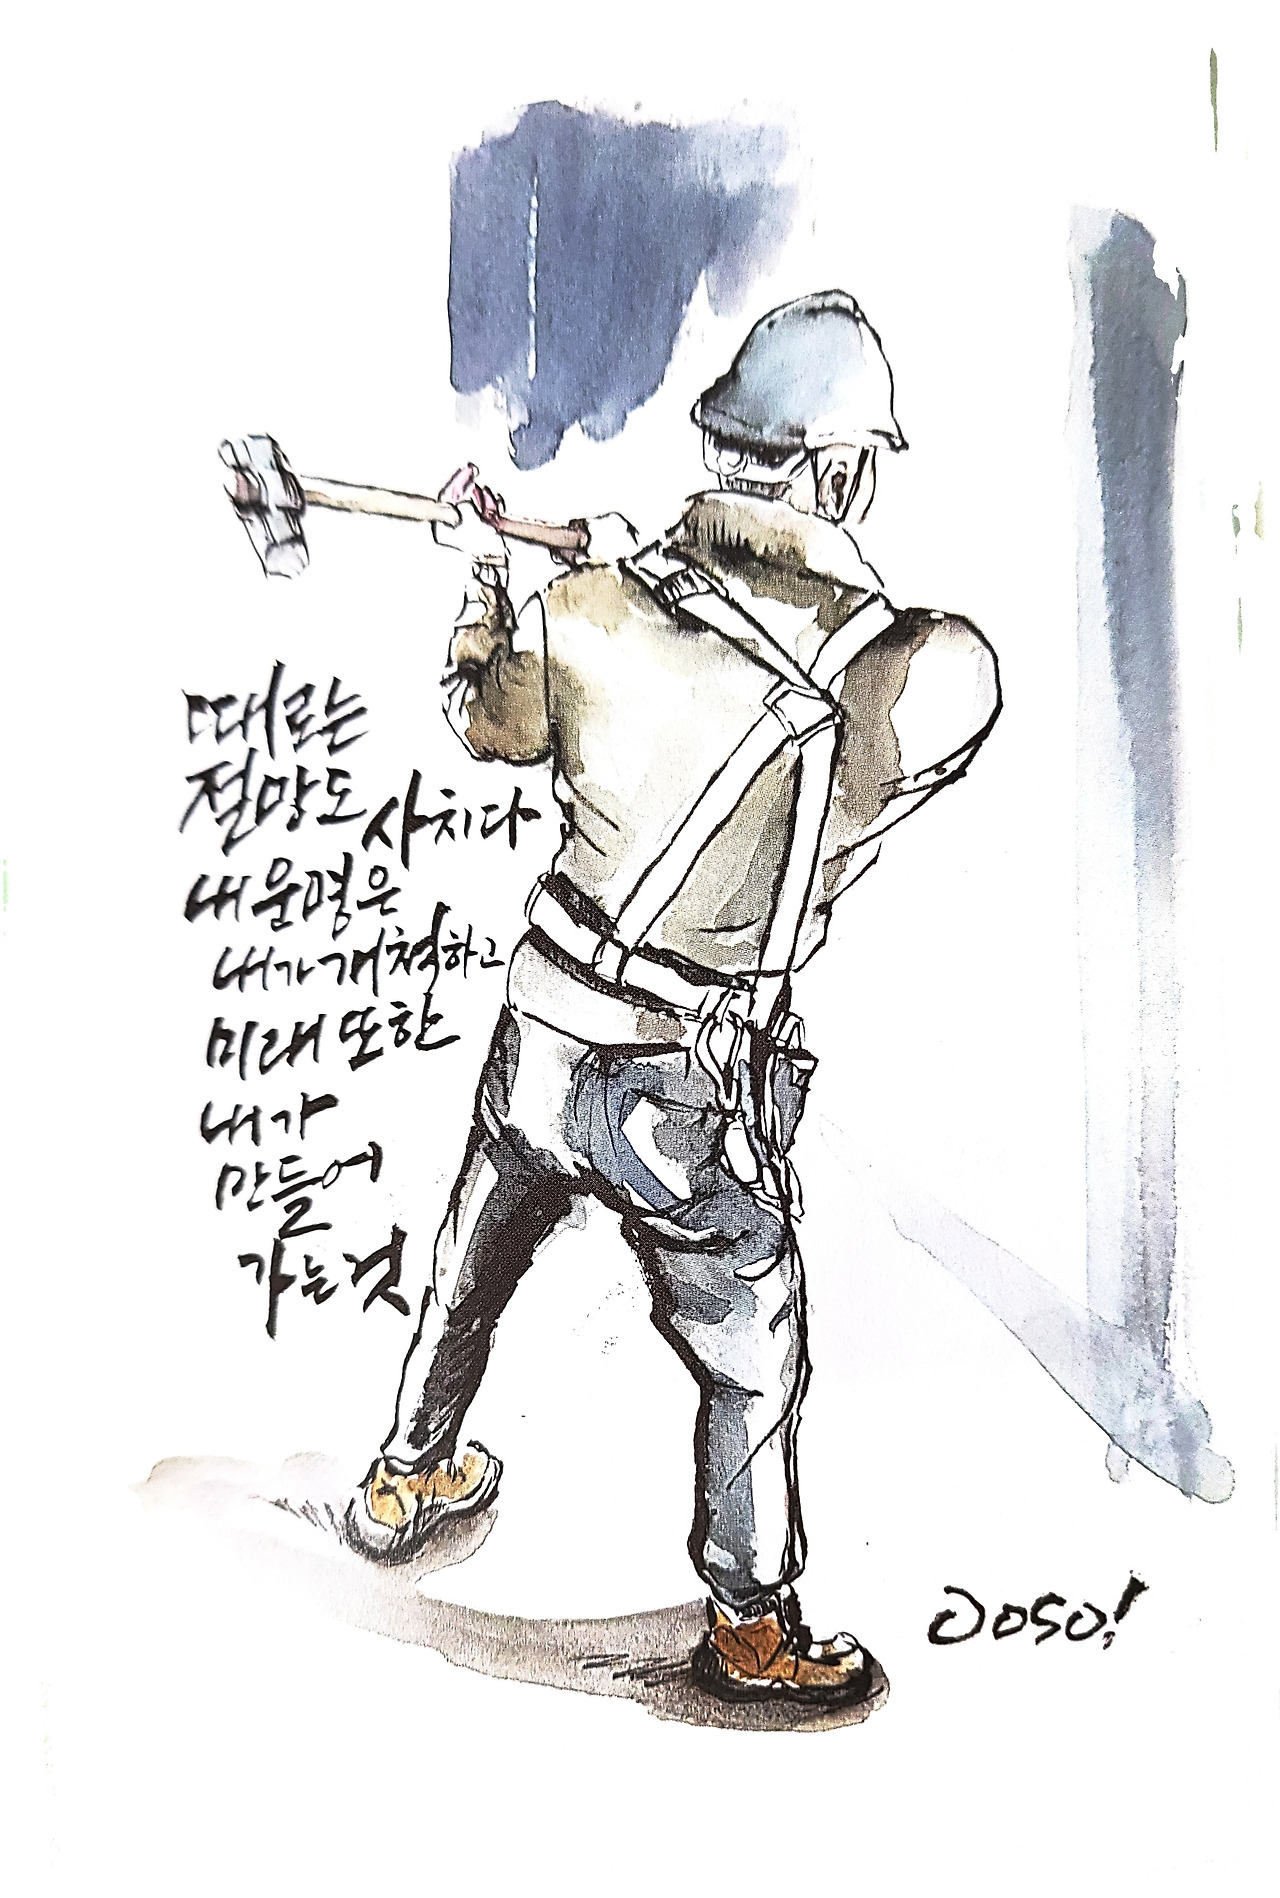 때로는
절망도 사치다
내 운명은
내가 개척하고
미래 또한
내가
만들어
가는 것
OOSO!